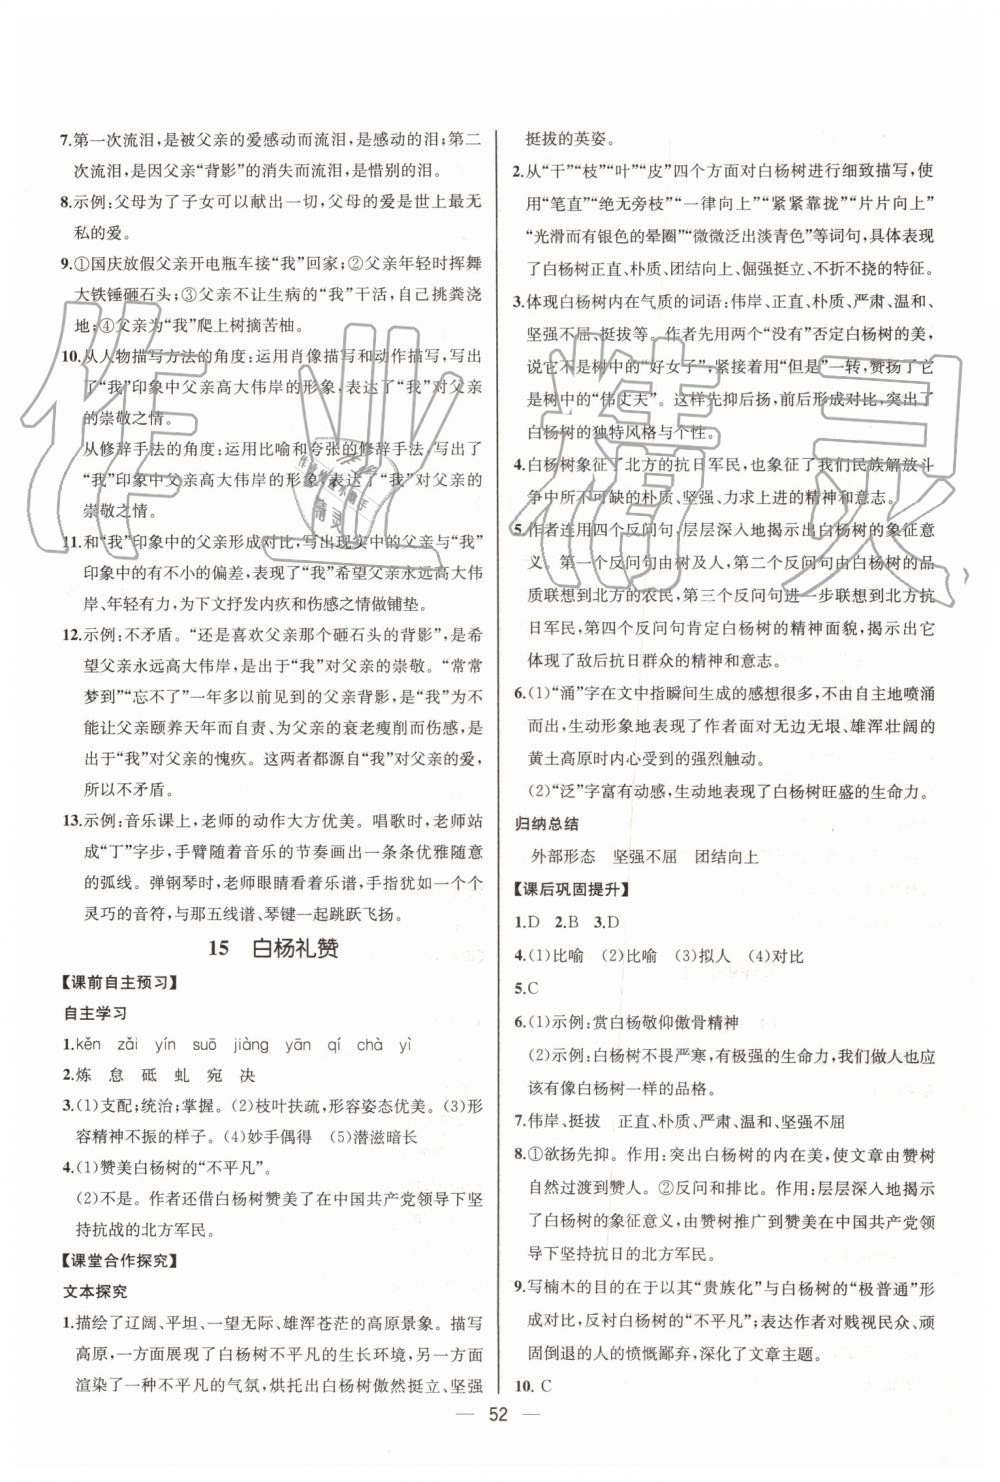 7.第一次流泪，是被父亲的爱感动而流泪，是感动的泪；第二
次流泪，是因父亲“背影”的消失而流泪，是惜别的泪。
8.示例：父母为了子女可以献出一切，父母的爱是世上最无
私的爱。
9.①国庆放假父亲开电瓶车接“我”回家；②父亲年轻时挥舞
大铁锤砸石头；③父亲不让生病的“我”干活，自己挑粪浇
地；④父亲为“我”爬上树摘苦柚。
10.从人物描写方法的角度：运用肖像描写和动作描写，写出
了“我”印象中父亲高大伟岸的形象，表达了“我”对父亲
的崇敬之情。
从修辞手法的角度：运用比喻和夸张的修辞手法，写出了
“我”印象中父亲高大伟岸的形象，表达了“我”对父亲的
崇敬之情。
11.和“我”印象中的父亲形成对比，写出现实中的父亲与“我”
印象中的有不小的偏差，表现了“我”希望父亲永远高大伟
岸、年轻有力，为下文抒发内疚和伤感之情做铺垫。
12.示例：不矛盾。“还是喜欢父亲那个砸石头的背影”，是希
望父亲永远高大伟岸，是出于“我”对父亲的崇敬。“常常
梦到”“忘不了”一年多以前见到的父亲背影，是“我”为没
能让父亲颐养天年而自责、为父亲的衰老瘦削而伤感，是
出于“我”对父亲的愧疚。这两者都源自“我”对父亲的爱，
所以不矛盾。
13.示例：音乐课上，老师的动作大方优美。唱歌时，老师站
成“丁”字步，手臂随着音乐的节奏画出一条条优雅随意
的弧线。弹钢琴时，老师眼睛看着乐谱，手指和一个个
灵巧的音符，与那五线谱、琴键一起跳跃飞扬。
15 白杨礼赞
【课前自主预习】
自主学习
1.kěn zǎi yín suō jiàng yān qí chà yì
2.炼 怠 砥 虬 宛 决
3.(1)支配；统治；掌握。(2)枝叶扶疏，形容姿态优美。(3)形
容精神不振的样子。(4)妙手偶得 (5)潜滋暗长
4.(1)赞美白杨树的“不平凡”。
(2)不是。作者还借白杨树赞美了在中国共产党领导下坚
持抗战的北方军民。
【课堂合作探究】
文本探究
1.描绘了辽阔、平坦、一望无际、雄浑苍茫的高原景象。描写
高原，一方面展现了白杨树不平凡的生长环境，另一方面
渲染了一种不平凡的气氛，烘托出白杨树傲然挺立、坚强
挺拔的英姿。
2.从“干”“枝”“叶”“皮”四个方面对白杨树进行细致描写，使
用“笔直”“绝无旁枝”“一律向上”“紧紧靠拢”“片片向上”
“光滑而有银色的晕圈”“微微泛出淡青色”等词句，具体展
现了白杨树正直、朴质、团结向上、倔强挺立、不折不挠的特征。
3.体现白杨树内在气质的词语：伟岸、正直、朴质、严肃、温和、
坚强不屈、挺拔等。作者先用两个“没有”否定白杨树的美，
说它不是树中的“好女子”；紧接着用“但是”一转，赞扬了它
是树中的“伟丈夫”。这样先抑后扬，前后形成对比，突出了
白杨树的独特风格与个性。
4.白杨树象征了北方的抗日军民，也象征了我们民族解放斗
争中所不可缺的朴质、坚强、力求上进的精神和意志。
5.作者连用四个反问句，层层深入地揭示出白杨树的象征意
义。第一个反问句由树及人，第二个反问句由白杨树的品
质联想到北方的农民，第三个反问句进一步联想到北方抗
日军民，第四个反问句肯定白杨树的精神面貌，揭示出它
体现了敌后抗日群众的精神和意志。
6.(1)“涌”字在文中指瞬间生成的感想很多，不由自主地喷涌
而出，生动形象地表现了作者面对无边无垠、雄浑壮阔的
黄土高原时内心受到的强烈触动。
(2)“泛”字富有动感，生动地表现了白杨树旺盛的生命力。
归纳总结
外部形态 坚强不屈 团结向上
【课后巩固提升】
1.D 2.B 3.D
4.(1)比喻 (2)比喻 (3)拟人 (4)对比
5.C
6.(1)示例：赏白杨敬仰傲骨精神
(2)示例：白杨树不畏严寒，有极强的生命力，我们做人也应
该有像白杨树一样的品格。
7.伟岸、挺拔 正直、朴质、严肃、温和、坚强不屈
8.①欲扬先抑。作用：突出白杨树的内在美，使文章由赞树
自然过渡到赞人。②反问和排比。作用：层层深入地揭示
了白杨树的象征意义，由赞树推广到赞美在中国共产党领
导下坚持抗日的北方军民。
9.写楠木的目的在于以其“贵族化”与白杨树的“极普通”形
成对比，反衬白杨树的“不平凡”；表达作者对贱视民众、顽
固倒退的人的愤慨鄙弃，深化了文章主题。
10. C
— 52 —
作业精灵